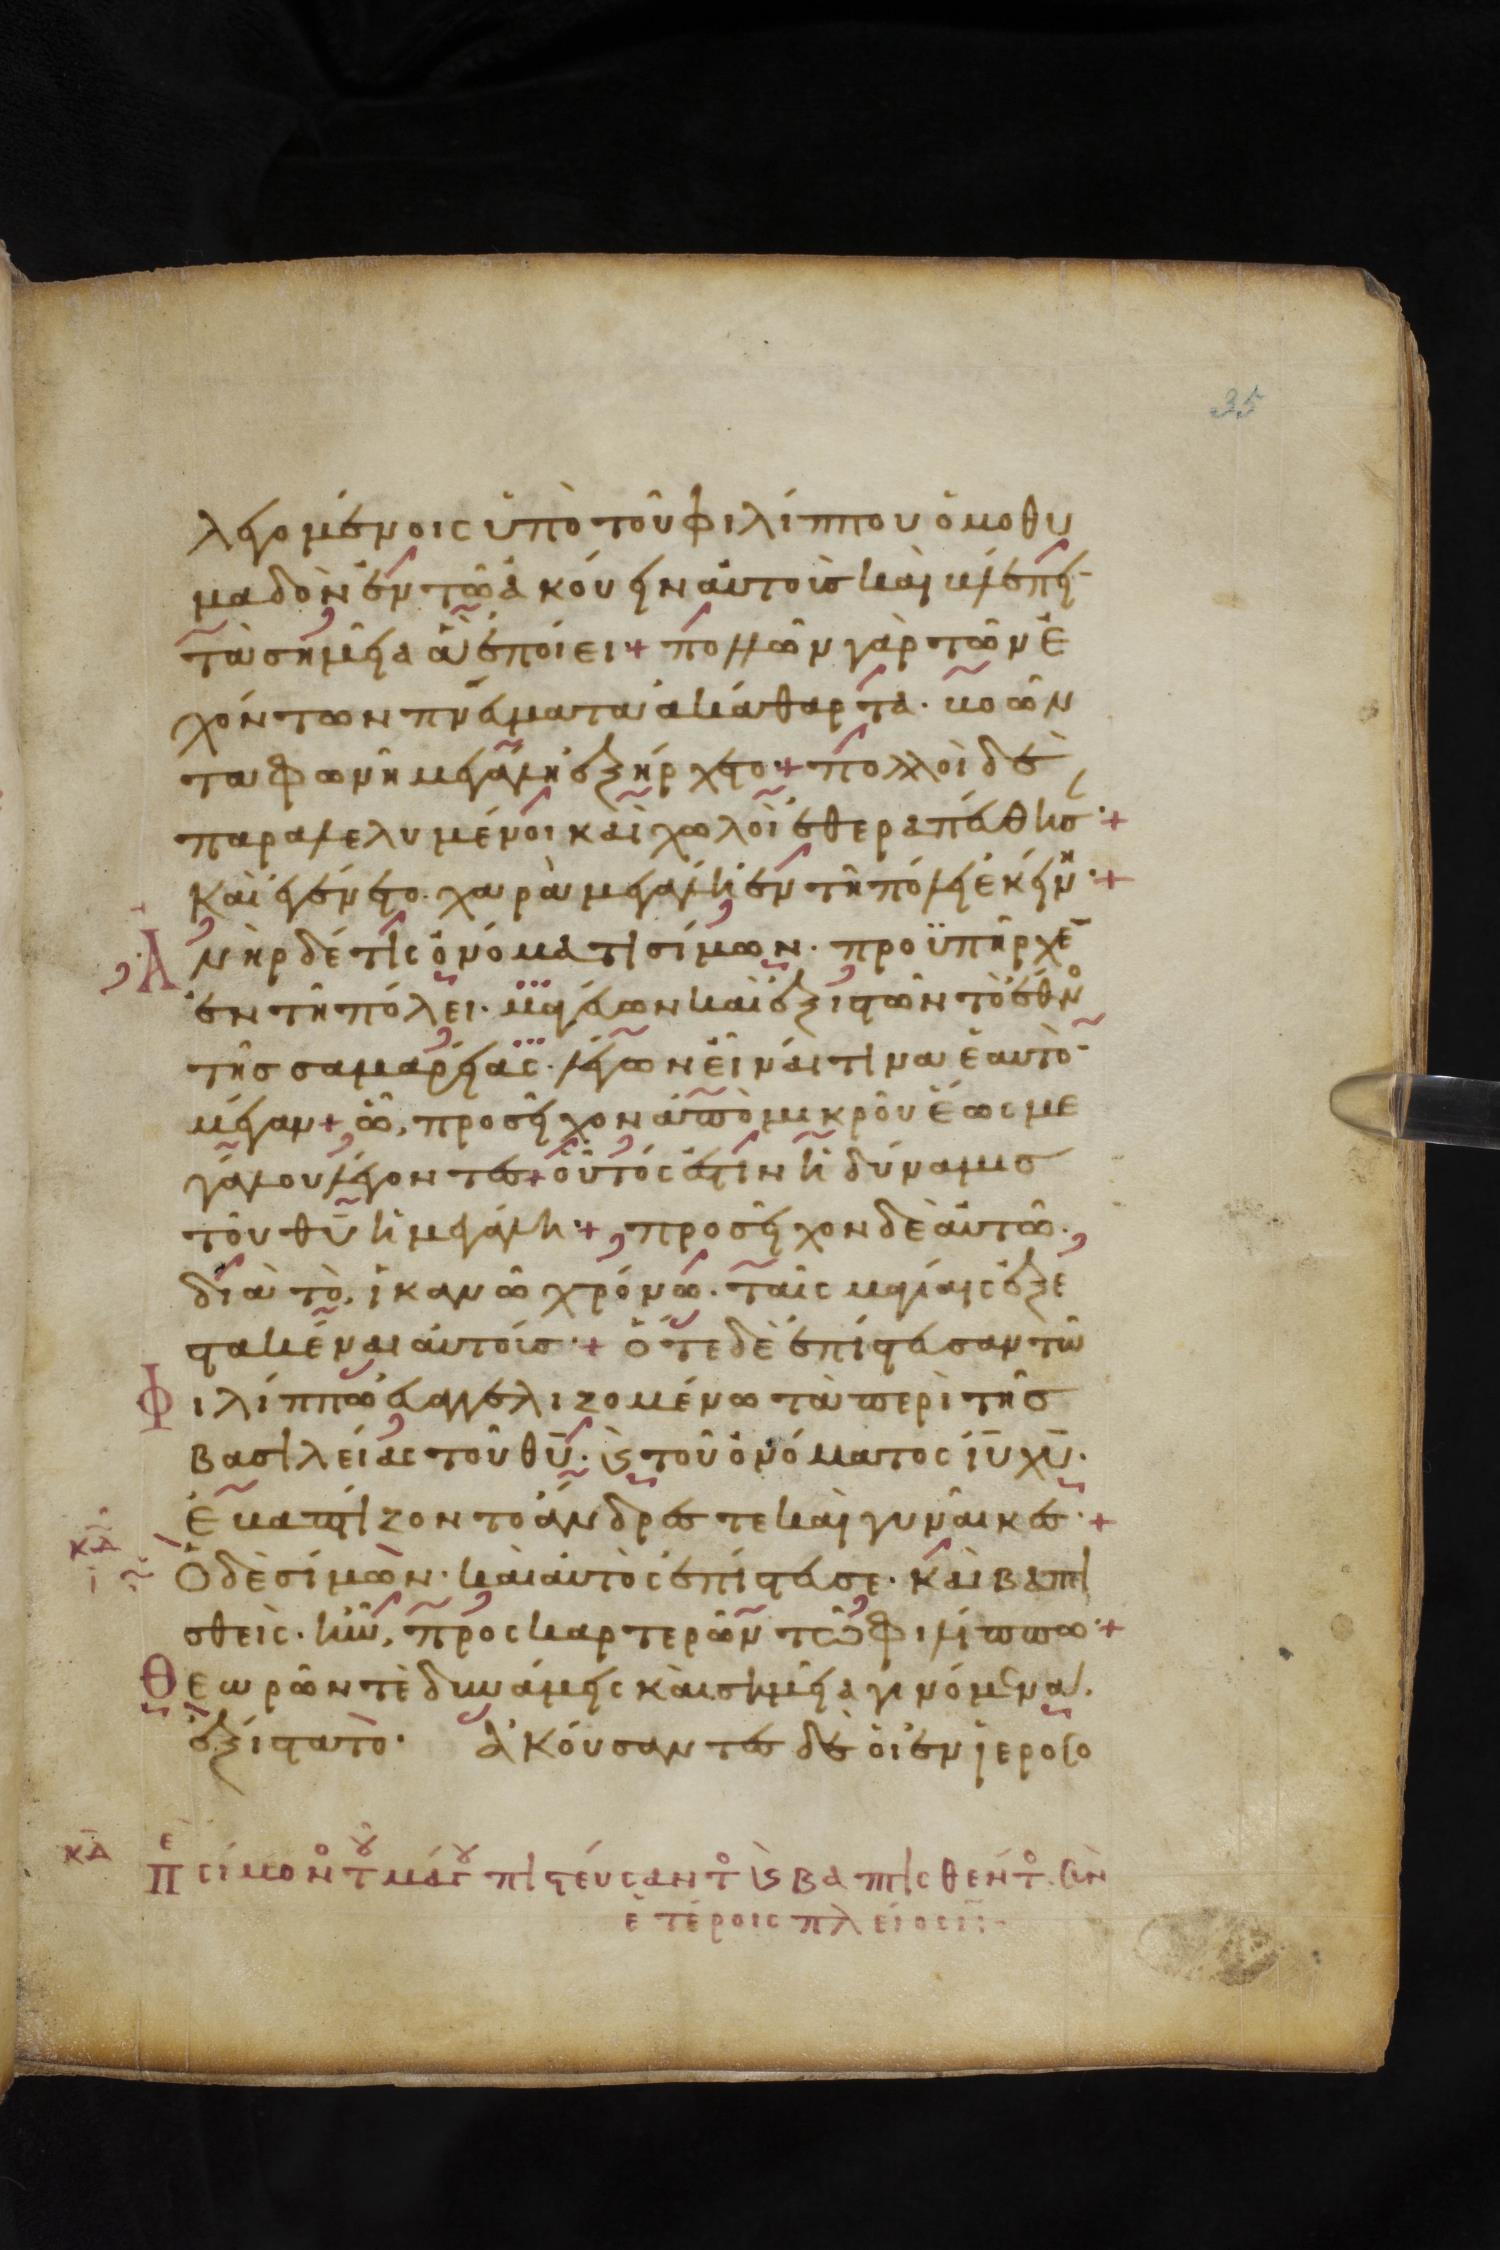 35
λεγομένοις ὑπὸ τοῦ φιλίππου ὁμοθυ
μαδὸν ἐν τῶ ἀκούειν αὐτοὺς καὶ βλέπειν
τὰ σημεῖα ἃ ἐποίει + πολλῶν γὰρ τῶν ἐ
χόντων πνεύματα ἀκάθαρτα. βοῶντα
φωνῆ μεγάλη ἐξήρχετο + πολλοὶ δὲ
παραλελυμένοι καὶ χωλοὶ ἐθεραπεύθησ +
καὶ ἐγένετο χαρὰ μεγάλη ἐν τῆ πόλει ἐκείνη +
Ἀνὴρ δέ τις ὀνόματι σίμων. προϋπῆρχε
ἐν τῆ πόλει. μαγεύων καὶ ἐξιστῶν τὸ ἔθνος
τῆς σαμαρείας. λέγων εἶναί τινα ἑαυτὸ
μέγαν + ὧ, προσεῖχον ἀπὸ μικροῦ ἕως με
γάλου λέγοντες + οὗτός ἐστιν ἡ δύναμις
τοῦ θῦ ἡ μεγάλη + προσεῖχον δὲ αὐτῶ.
διὰ τὸ, ἱκανῶ χρόνω. ταῖς μαγίαις ἐξε
στακέναι αὐτούς + ὅτε δὲ ἐπίστευσαν τῶ
Φιλίππω εὐαγγελιζομένω τὰ περὶ τῆς
βασιλείας τοῦ θῦ. ϗ τοῦ ὀνόματος ἰῦ χῦ.
ἐβαπτίζοντο ἄνδρες τε καὶ γυναῖκες +
κδ Ὁ δὲ σίμων. καὶ αὐτὸς ἐπίστευσε. καὶ βαπτι
σθεὶς. ἦν, προσκαρτερῶν τῶ φιλίππω +
Θεωρῶν τὲ δυνάμεις καὶ σημεῖα γινόμενα.
ἐξίστατο. ἀκούσαντες δὲ οἱ ἐν ἱεροσο
κδ πε σίμονο τοῦ μάγου πιστεύσαντο ϗ βαπτισθέντο. σὺν
ἑτέροις πλείοσιν